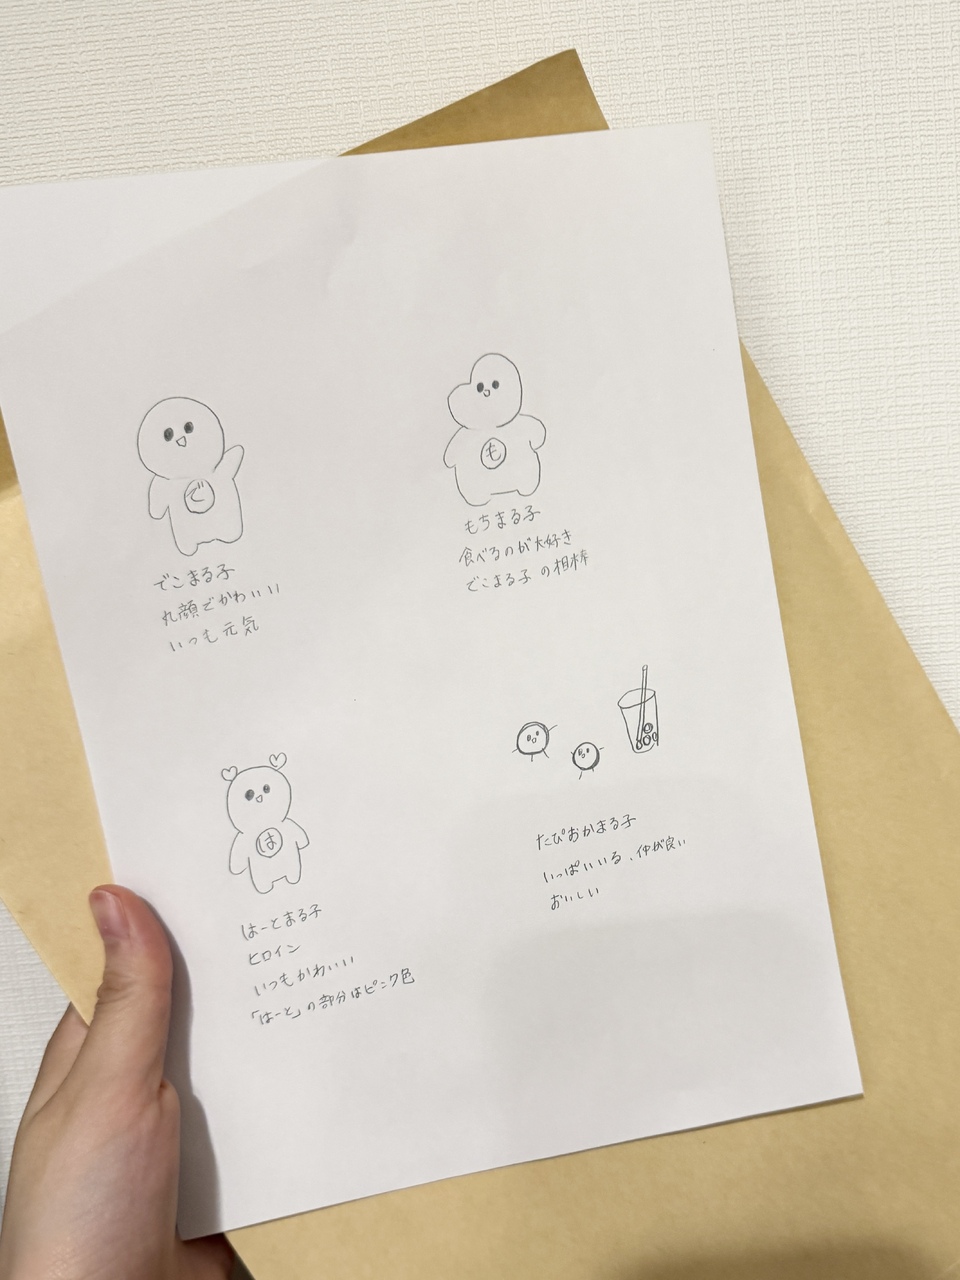 で
でこまる子
丸顔でかわいい
いつも元気
も
もちまる子
食べるのが大好き
でこまる子の相棒
は
はーとまる子
ヒロイン
いつもかわいい
「はーと」の部分はピンク色
たぴおかまる子
いっぱいいる、仲が良い
おいしい